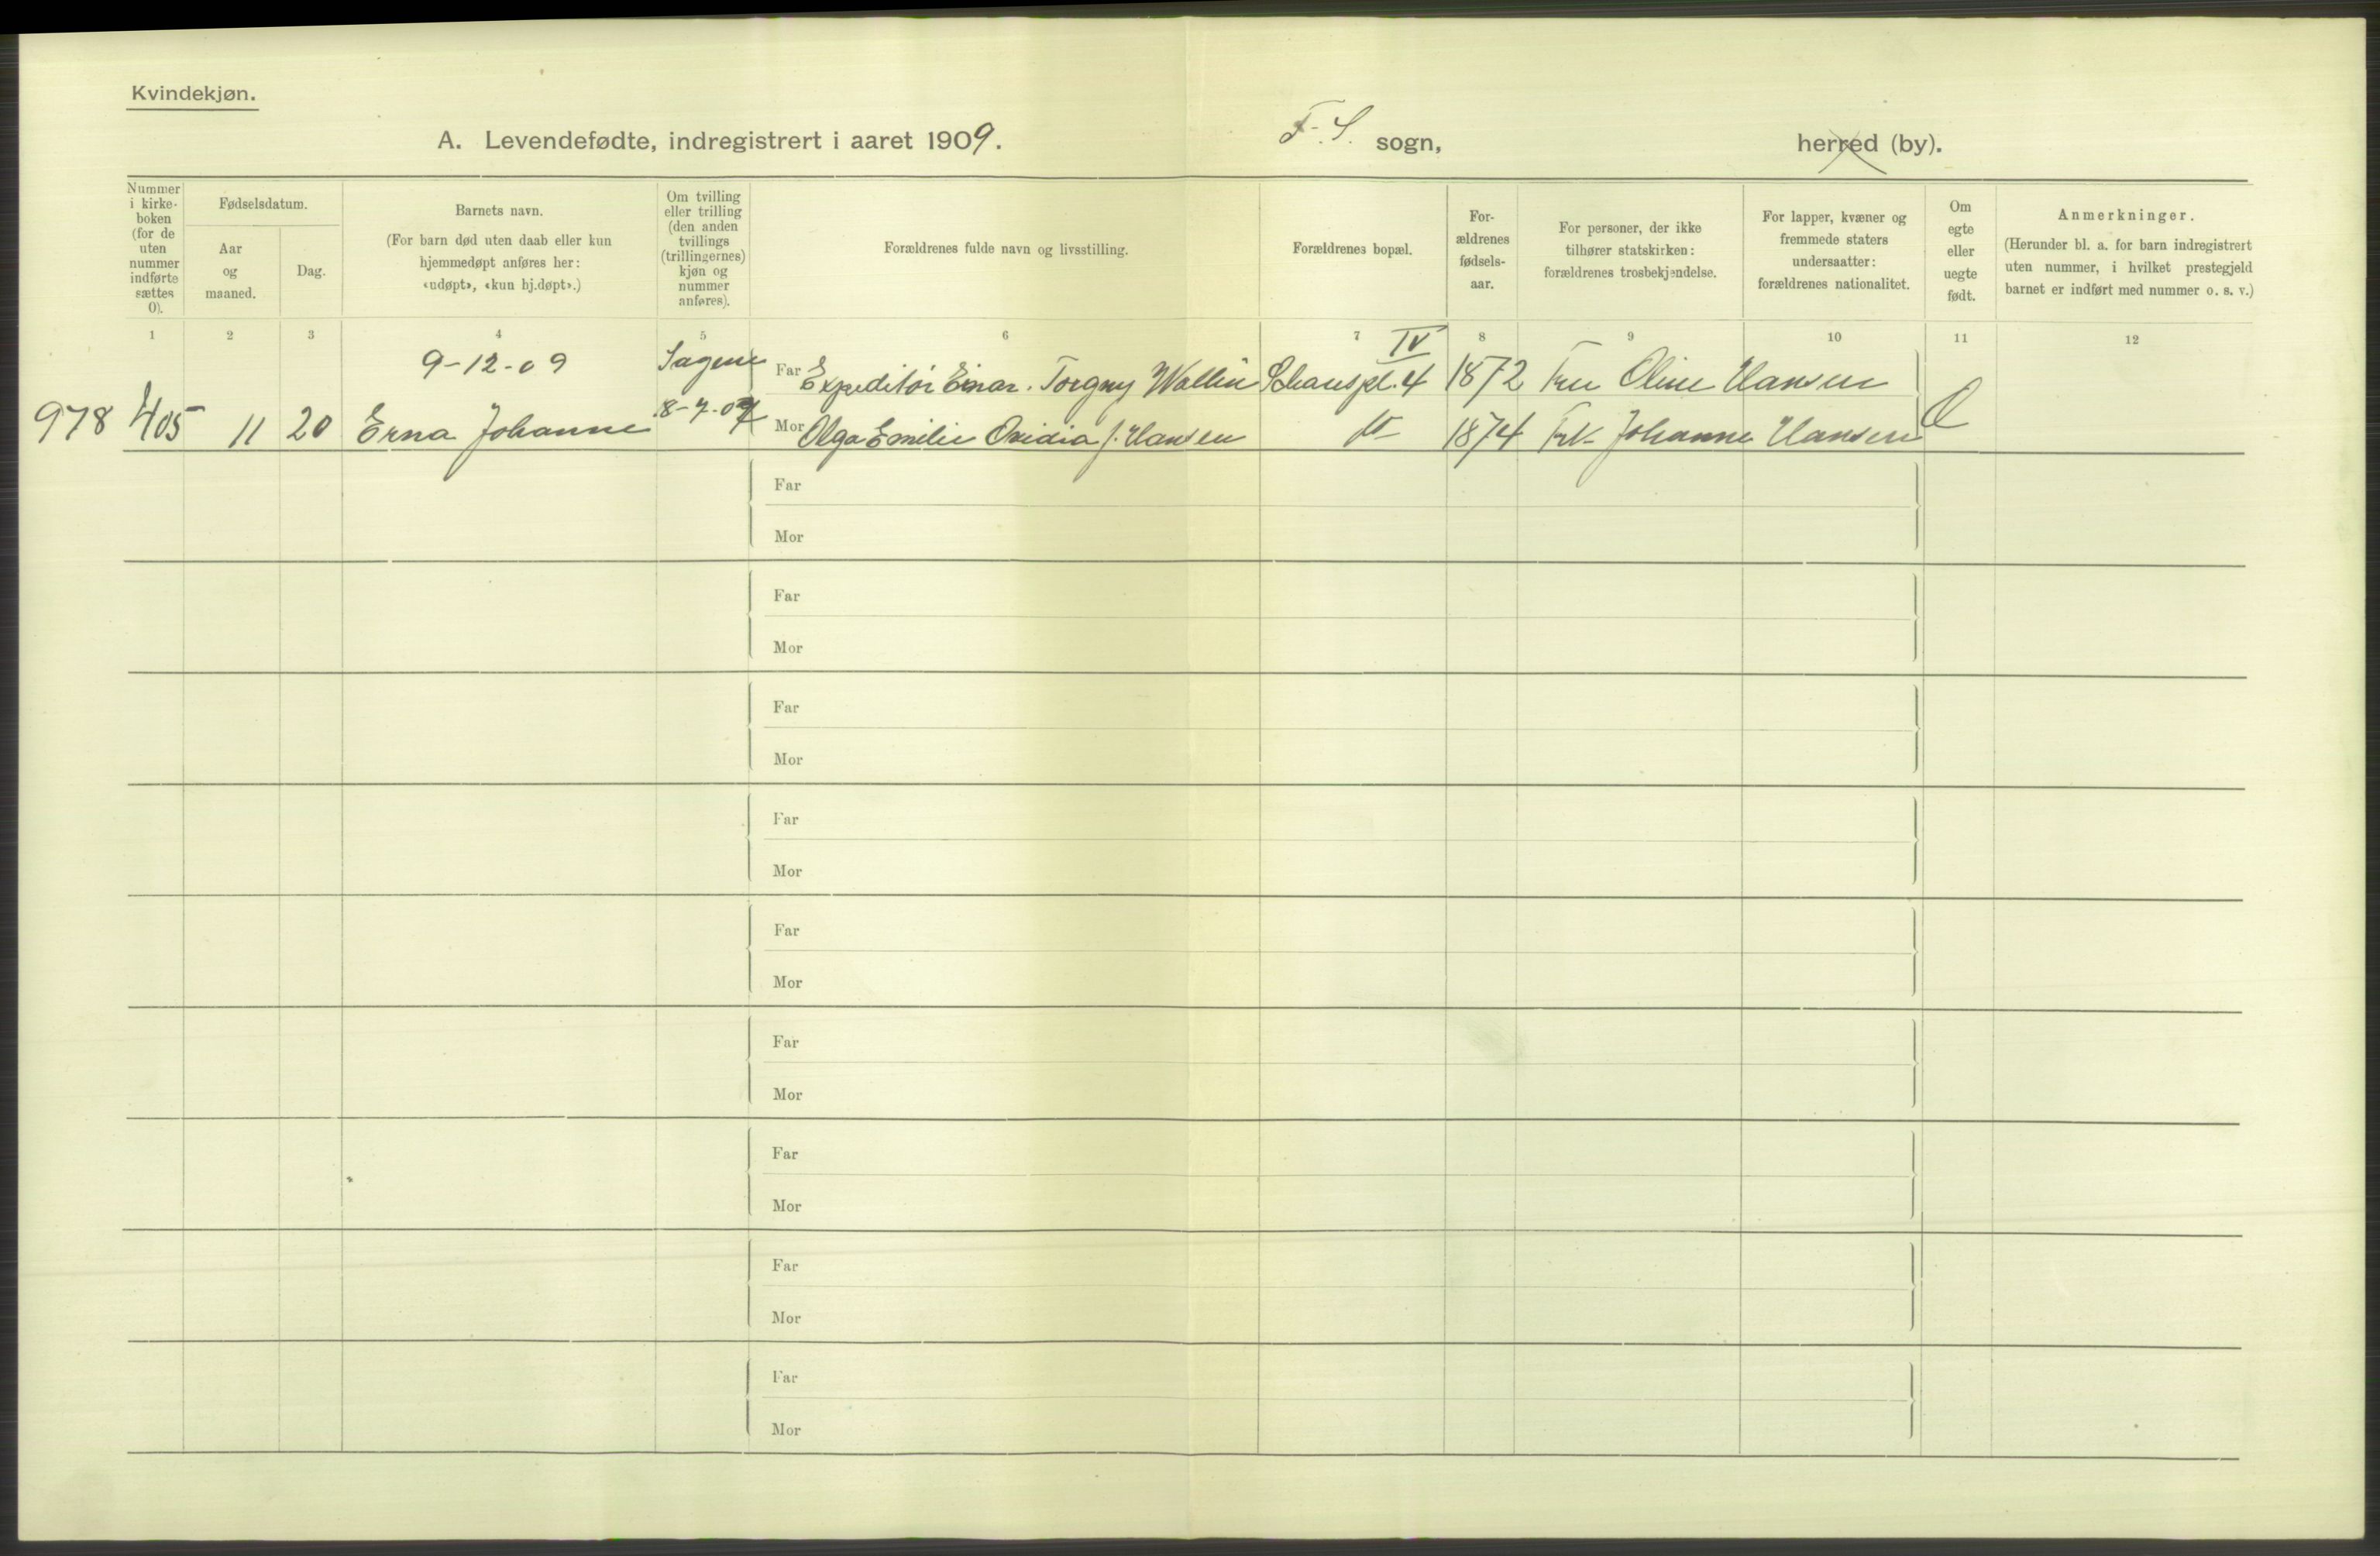 Kvindekjøn.
A. Levendefødte, indregistrert i aaret 1909. F. S. sogn, herred (by).
Nummer i kirke-boken (for de uten nummer indførte sættes 0).
Fødselsdatum.
Aar og maaned.
Dag.
Barnets navn.
(For barn død uten daab eller kun hjemmedøpt anføres her: «udøpt», «kun hj.døpt».)
Om tvilling eller trilling (den anden tvillings (trillingernes) kjøn og nummer anføres).
Forældrenes fulde navn og livsstilling.
Forældrenes bopæl.
For-ældrenes fødsels-aar.
For personer, der ikke tilhører statskirken: forældrenes trosbekjendelse.
For lapper, kvæner og fremmede staters undersaatter: forældrenes nationalitet.
Om egte eller uegte født.
Anmerkninger.
(Herunder bl. a. for barn indregistrert uten nummer, i hvilket prestegjeld barnet er indført med nummer o. s. v.)
1 2 3 4 5 6 7 8 9 10 11 12
9-12-09 Sagene Far Expeditør Einar Torgny Wallin Schouspl. 4 IV 1872 Fru Oline Hansen
978 405 11 20 Erna Johanne 8-7-07 Mor Olga Emilie Oxidia f. Hansen 1874 Frk Johanne Hansen
Far
Mor
Far
Mor
Far
Mor
Far
Mor
Far
Mor
Far
Mor
Far
Mor
Far
Mor
Far
Mor